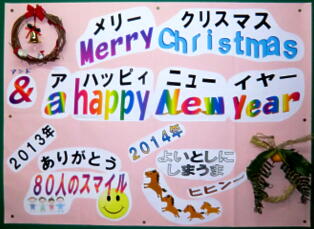 メリー クリスマス
Merry Christmas
アンド ア ハッピィ ニュー イヤー
& a happy New year
2013年
ありがとう
80人のスマイル
2014年
よいとしに
しまうま
ヒヒーン